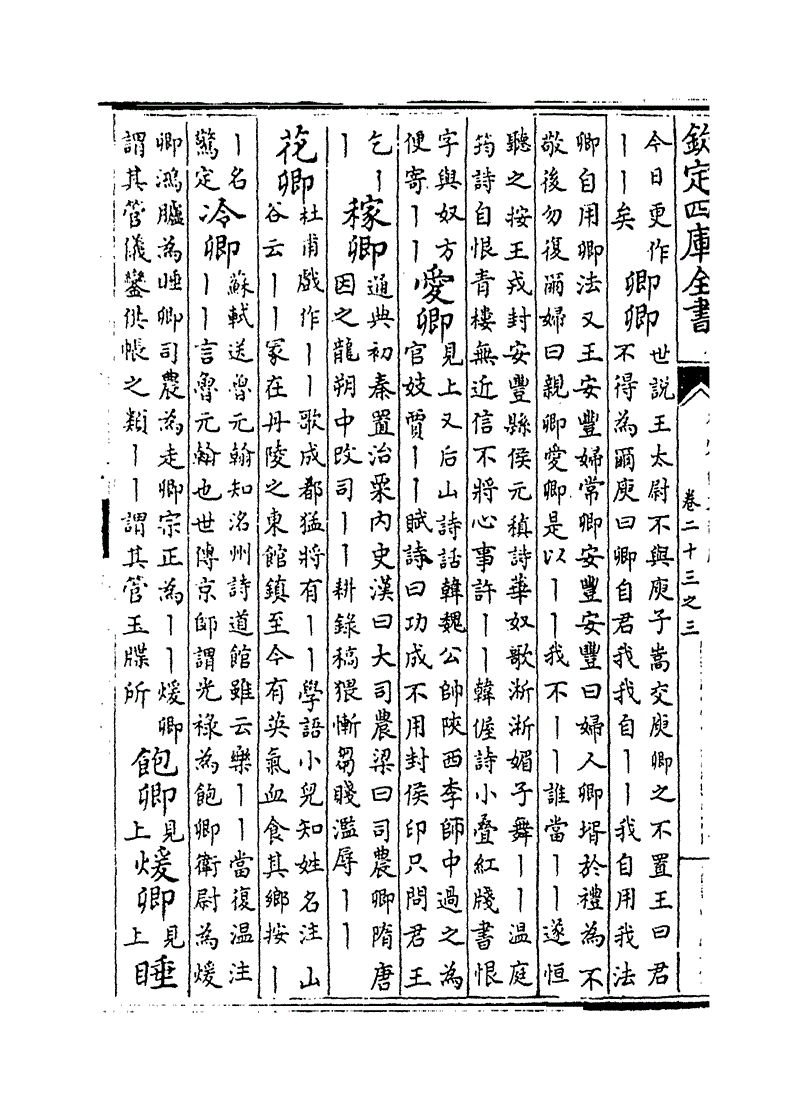 欽定四庫全書
卷二十三之三
今日更作
丨丨矣
卿卿
世說王太尉不與庾子嵩交庾卿之不置王曰君
不得為爾庾曰卿自君我我自丨丨我自用我法
卿自用卿法又王安豐婦常卿安豐安豐曰婦人卿壻於禮為不
敬後勿復爾婦曰親卿愛卿是以丨丨我不丨丨誰當丨丨遂恒
聽之按王戎封安豐縣侯元稹詩華奴歌淅淅媚子舞丨丨溫庭
筠詩自恨青樓無近信不將心事許丨丨韓偓詩小疊紅牋書恨
字與奴方
便寄丨丨
愛卿
見上又后山詩話韓魏公帥陝西李師中過之為
官妓賈丨丨賦詩曰功成不用封侯印只問君王
乞丨
丨
稼卿
通典初秦置治粟內史漢曰大司農梁曰司農卿隋唐
因之龍朔中改司丨丨耕錄稿猥慚芻賤濫辱丨丨
花卿
杜甫戲作丨丨歌成都猛將有丨丨學語小兒知姓名注山
谷云丨丨冢在丹陵之東館鎮至今有英氣血食其鄉按丨
丨名
驚定
冷卿
蘇軾送魯元翰知洺州詩道館雖云樂丨丨當復溫注
丨丨言魯元翰也世傳京師謂光祿為飽卿衛尉為煖
卿鴻臚為睡卿司農為走卿宗正為丨丨煖卿
謂其管儀鑾供帳之類丨丨謂其管玉牒所
飽卿
見上
煖卿
見上
睡